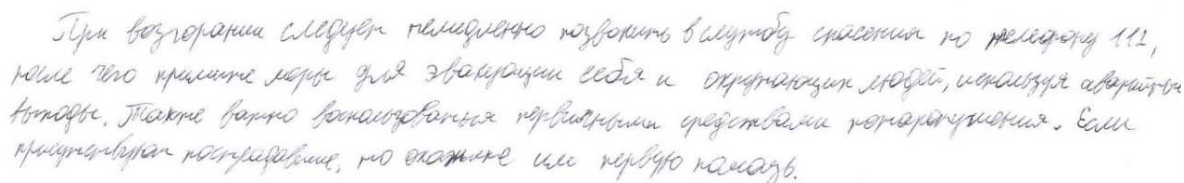 При возгорании следует немедленно позвонить в службу спасения по телефону 112,
после чего примите меры для эвакуации себя и окружающих людей, используя аварийные
выходы. Также важно воспользоваться первичными средствами пожаротушения. Если
присутствуют пострадавшие, то окажите им первую помощь.